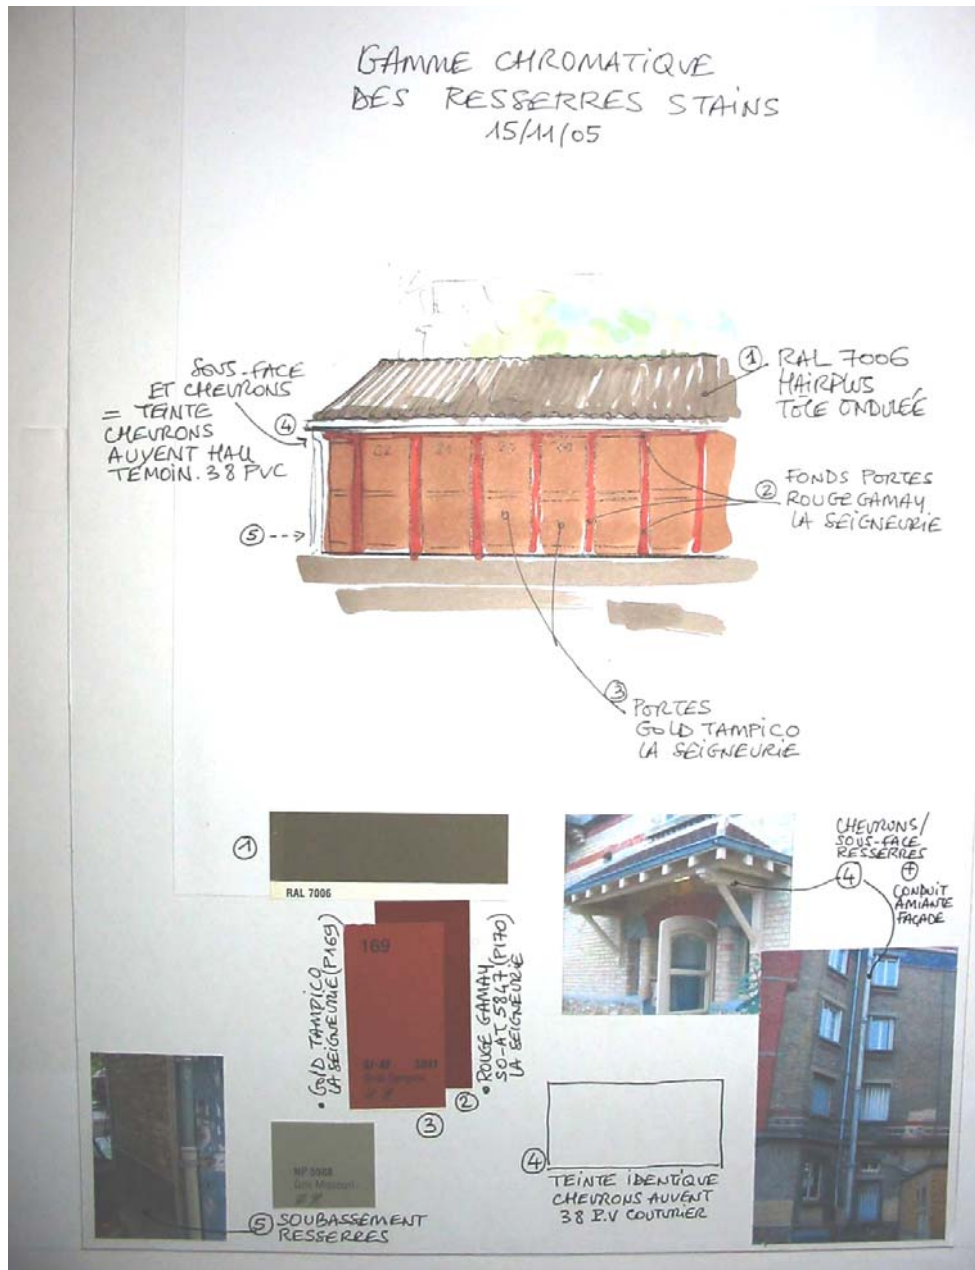 GAMME CHROMATIQUE
DES RESSERRES STAINS
15/11/05
SOUS-FACE
ET CHEVRONS
= TEINTE
CHEVRONS
AUVENT HALL
TEMOIN. 38 PVC
④
⑤
① RAL 7006
HAIRPLUS
TÔLE ONDULÉE
② FONDS PORTES
ROUGE GAMAY
LA SEIGNEURIE
③ PORTES
GOLD TAMPICO
LA SEIGNEURIE
①
RAL 7006
• GOLD TAMPICO
LA SEIGNEURIE (P169)
169
• ROUGE GAMAY
SO-AT 5847 (P170)
LA SEIGNEURIE
②
③
CHEVRONS/
SOUS-FACE
RESSERRES
④ +
CONDUIT
AMIANTE
FAÇADE
④
TEINTE IDENTIQUE
CHEVRONS AUVENT
38 P.V COUTURIER
⑤ SOUBASSEMENT
RESSERRES